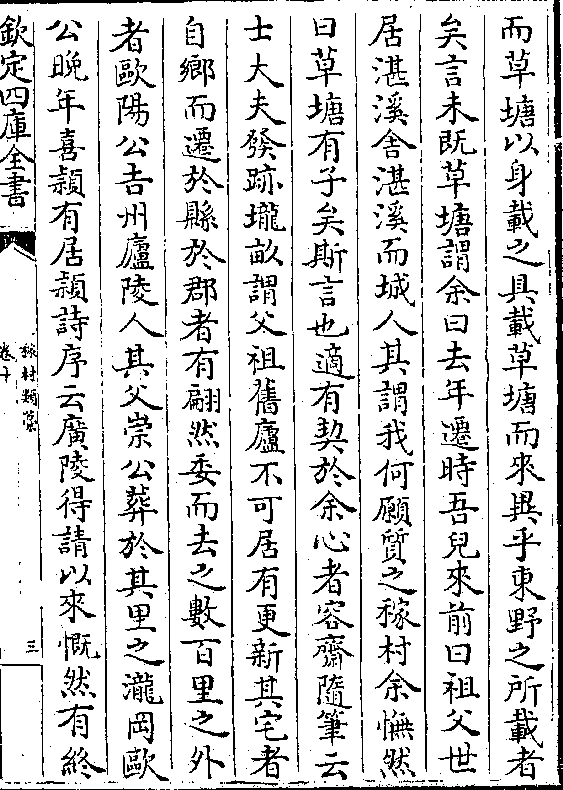 而草塘以身載之具載草塘而來異乎東野之所載者
矣言未既草塘謂余曰去年遷時吾兒來前曰祖父世
居湛溪舍湛溪而城人其謂我何願質之稼村余憮然
曰草塘有子矣斯言也適有契於余心者容齋隨筆云
士大夫發跡壠畝謂父祖舊廬不可居有更新其宅者
自鄉而遷於縣於郡者有翩然委而去之數百里之外
者歐陽公吉州廬陵人其父崇公葬於其里之瀧岡歐
公晚年喜潁有居潁詩序云廣陵得請以來慨然有終
欽定四庫全書
稼村類藁
卷十
三